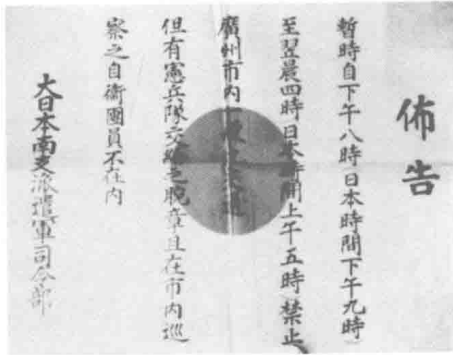 佈告
暫時自下午八時日本時間下午九時
至翌晨四時日本時間上午五時禁止
廣州市內一
但有憲兵隊交給之腕章且在市內巡
察之自衛團員不在內
大日本南支派遣軍司令部